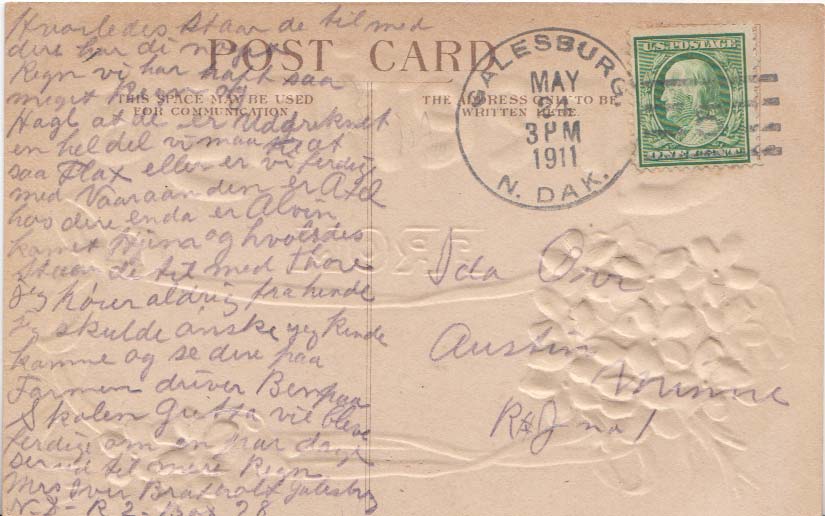 Hvorledes staar de til med
dere har di noget
POST CARD
Regn vi har haft saa
meget Regn og
THIS SPACE MAY BE USED
FOR COMMUNICATION
THE ADDRESS ONLY TO BE
WRITTEN HERE.
Hagl at de er
en hel del vi maa
saa Flax eller er vi ferdig
med Vaaraanden er
hos dere enda er Alvin
komet og hvolsdes
staar de til med Thore
Jeg hörer aldrig fra hende
Jeg skulde önske jeg kunde
komme og se dere paa
Farmen driver Ben paa
Skolen vil bleve
ferdige om en par dage
ser ud til mere Regn
Mrs Iver Galesburg
N-D- R 2- Box 28
GALESBURG,
MAY
3 PM
1911
N. DAK.
U.S. POSTAGE
ONE CENT
Ida
Austin
Minne
no 1